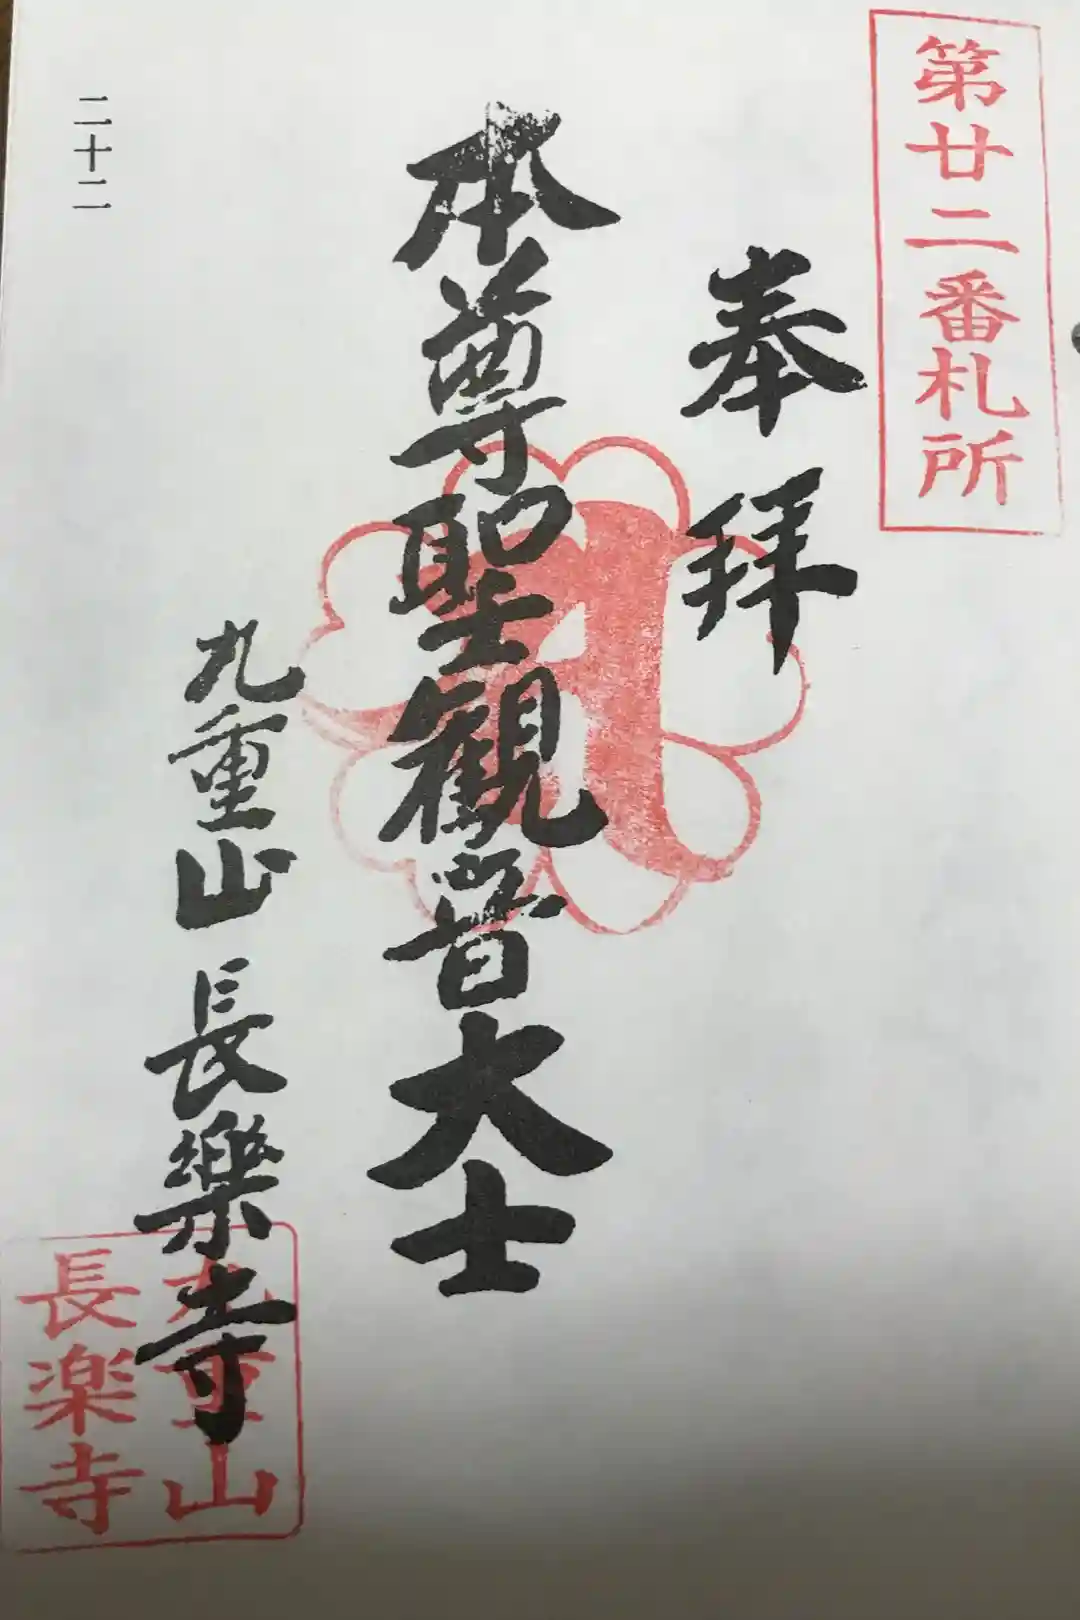 第廿二番札所
奉拜
本尊聖観音大士
九重山 長樂寺
九重山
長楽寺
二十二